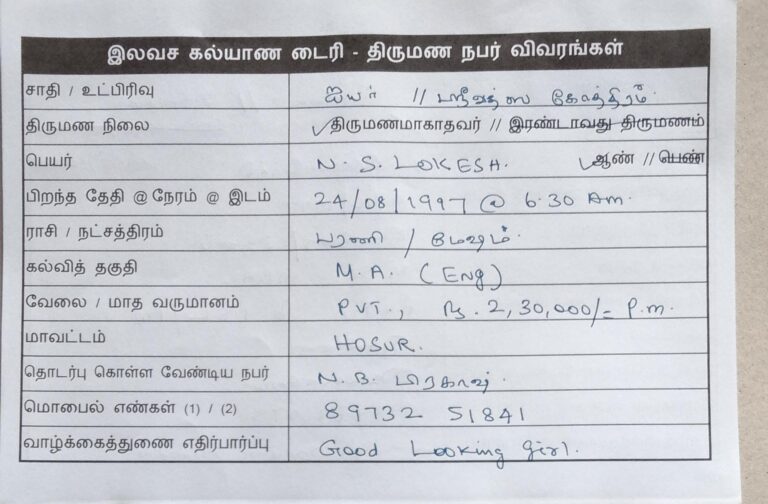 இலவச கல்யாண டைரி - திருமண நபர் விவரங்கள்
சாதி / உட்பிரிவு ஐயர் // ஸ்ரீவத்ஸ கோத்திரம்.
திருமண நிலை ✓திருமணமாகாதவர் // இரண்டாவது திருமணம்
பெயர் N. S. LOKESH. ✓ஆண் // பெண்
பிறந்த தேதி @ நேரம் @ இடம் 24/08/1997 @ 6.30 Am.
ராசி / நட்சத்திரம் பரணி / மேஷம்.
கல்வித் தகுதி M.A. (Eng)
வேலை / மாத வருமானம் PVT., Rs. 2,30,000/= P.m.
மாவட்டம் HOSUR.
தொடர்பு கொள்ள வேண்டிய நபர் N. B. பிரகாஷ்.
மொபைல் எண்கள் (1) / (2) 89732 51841
வாழ்க்கைத்துணை எதிர்பார்ப்பு Good Looking girl.